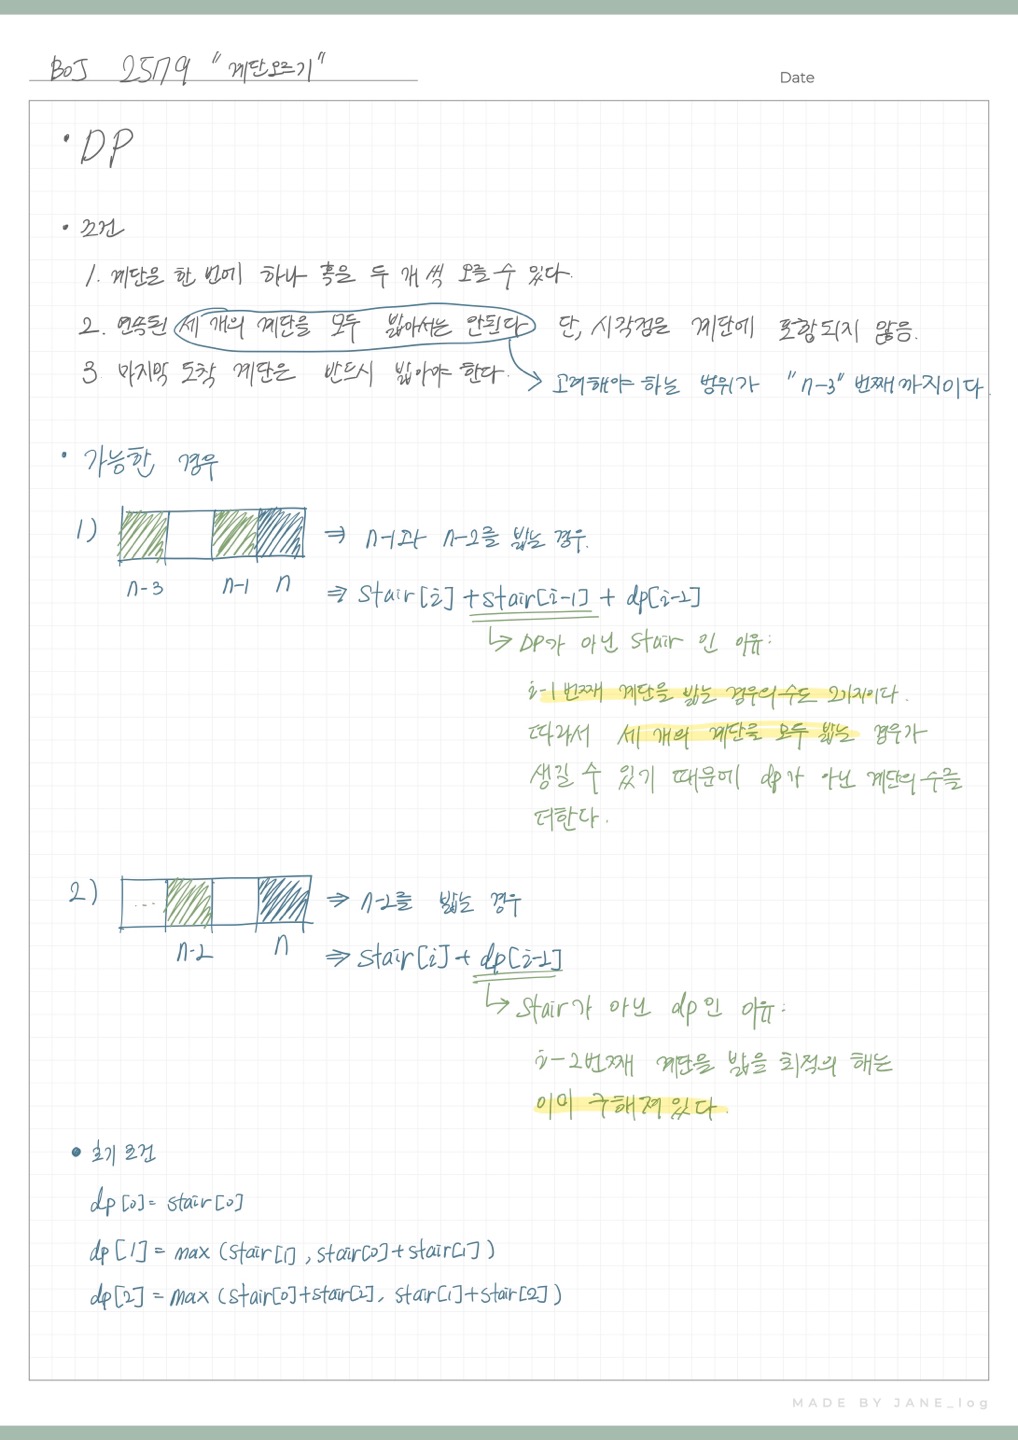 BOJ 2579 "계단오르기"
Date
• DP
• 조건
1. 계단은 한 번에 하나 혹은 두 개씩 오를 수 있다.
2. 연속된 세 개의 계단을 모두 밟아서는 안된다 단, 시작점은 계단에 포함되지 않음.
3. 마지막 도착 계단은 반드시 밟아야 한다.
고려해야 하는 범위가 "n-3" 번째까지이다.
• 가능한 경우
1)
n-3 n-1 n
⇒ n-1과 n-2를 밟는 경우.
⇒ stair[i] + stair[i-1] + dp[i-2]
↳ DP가 아닌 stair 인 이유:
i-1번째 계단을 밟는 경우의수도 2가지이다.
따라서 세 개의 계단을 모두 밟는 경우가
생길 수 있기 때문에 dp가 아닌 계단의 수를
더한다.
2) ...
n-2 n
⇒ n-2를 밟는 경우
⇒ stair[i] + dp[i-2]
↳ stair가 아닌 dp인 이유:
i-2번째 계단을 밟을 최적의 해는
이미 구해져있다.
• 초기 조건
dp[0] = stair[0]
dp[1] = max (stair[1], stair[0]+stair[1])
dp[2] = max (stair[0]+stair[2], stair[1]+stair[2])
MADE BY JANE_log